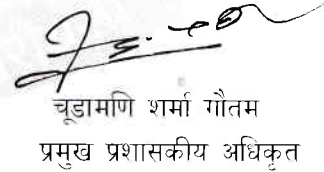 चूडामणि शर्मा गौतम
प्रमुख प्रशासकीय अधिकृत